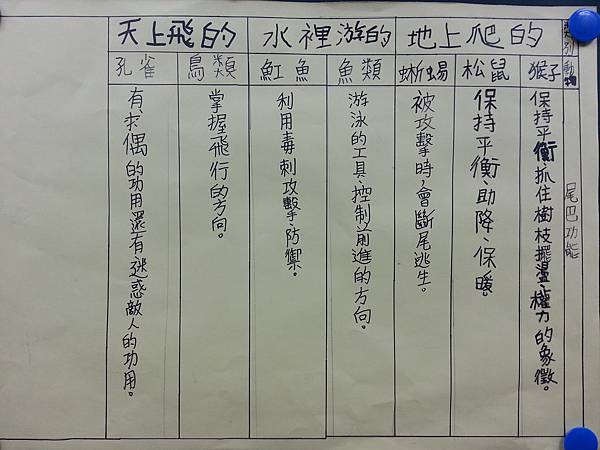 類別
動物
尾巴功能
地上爬的
猴子
保持平衡、抓住樹枝擺盪、權力的象徵。
松鼠
保持平衡、助降、保暖。
蜥蜴
被攻擊時，會斷尾逃生。
水裡游的
魚類
游泳的工具、控制前進的方向。
魟魚
利用毒刺攻擊、防禦。
天上飛的
鳥類
掌握飛行的方向。
孔雀
有求偶的功用還有迷惑敵人的功用。